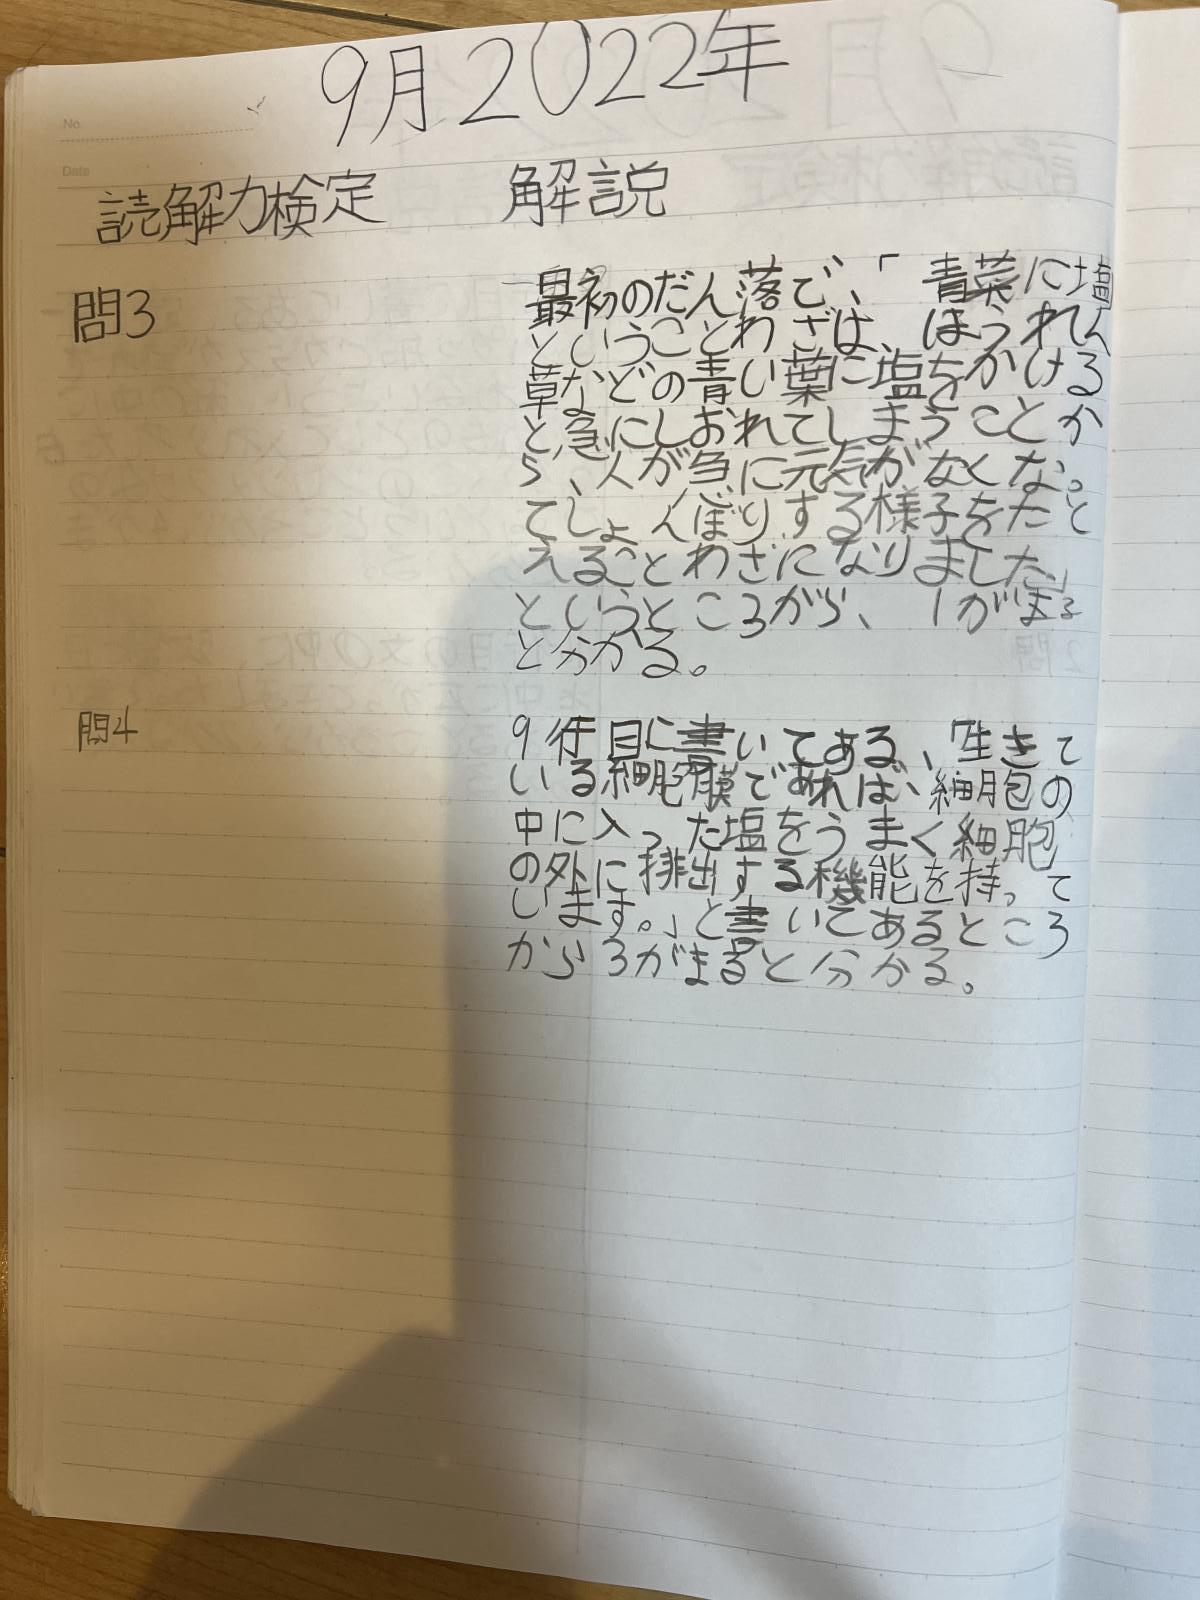 9月2022年
No.
Date
読解力検定 解説
問3
最初のだん落で、「青菜に塩
ということわざは、ほうれん
草などの青い葉に塩をかける
と急にしおれてしまうことか
ら、人が急に元気がなくなっ
てしょんぼりする様子をたと
えることわざになりました」
というところから、1がまる
と分かる。
問4
9行目に書いてある、「生きて
いる細胞膜であれば、細胞の
中に入った塩をうまく細胞
の外に排出する機能を持って
います。」と書いてあるところ
から3がまると分かる。